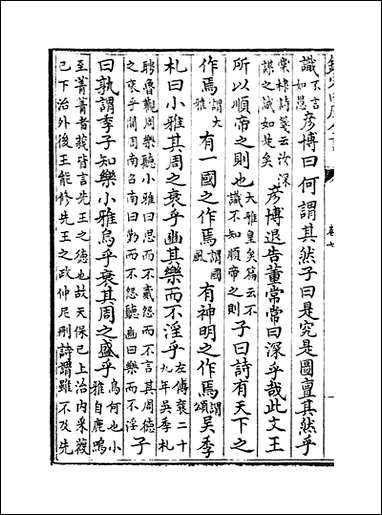 欽定四庫全書 卷七
識不言如愚彦博曰何謂其然子曰是究是圖亶其然乎
棠棣詩箋云汝深謀之誠如是矣彦博退告董常常曰深乎哉此文王
所以順帝之則也大雅皇矣篇云不識不知順帝之則子曰詩有天下之
作焉謂大雅有一國之作焉謂國風有神明之作焉謂頌吳季
札曰小雅其周之衰乎豳其樂而不淫乎左傳襄二十九年吳季札
聘魯觀周樂聽小雅曰思而不貳怨而不言其周德之衰乎聞周南召南曰勤而不怨聽豳曰樂而不淫子
曰孰謂季子知樂小雅烏乎衰其周之盛乎烏何也小雅自鹿鳴
至菁菁者莪皆言先王之德也故天保已上治内采薇已下治外後王能修先王之政仲尼刪詩謂雖不及先